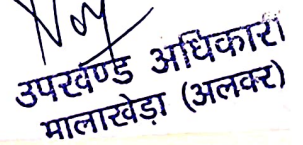 उपखण्ड अधिकारी
मालाखेड़ा (अलवर)